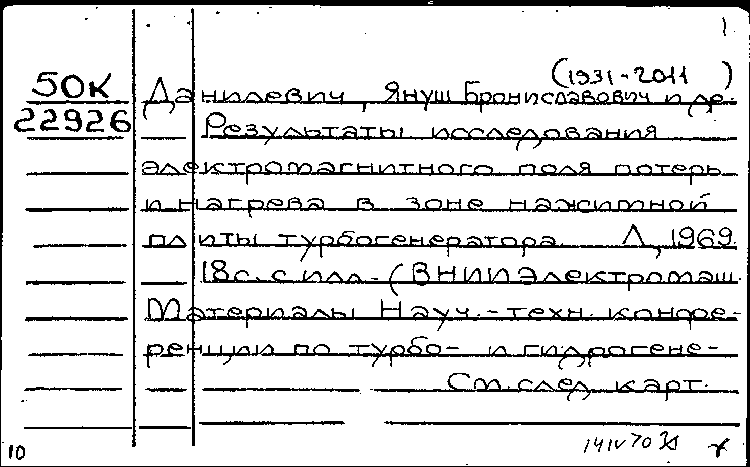 1
(1931-2011)
50К Данилевич, Януш Брониславович и др.
22926 Результаты исследования
электромагнитного поля потерь
и нагрева в зоне нажимной
плиты турбогенератора. Л., 1969.
18с. с илл.- (ВНИИЭлектромаш.
Материалы Науч.-техн. конфе-
ренции по турбо- и гидрогене-
См. след. карт.
10 14 IV 70